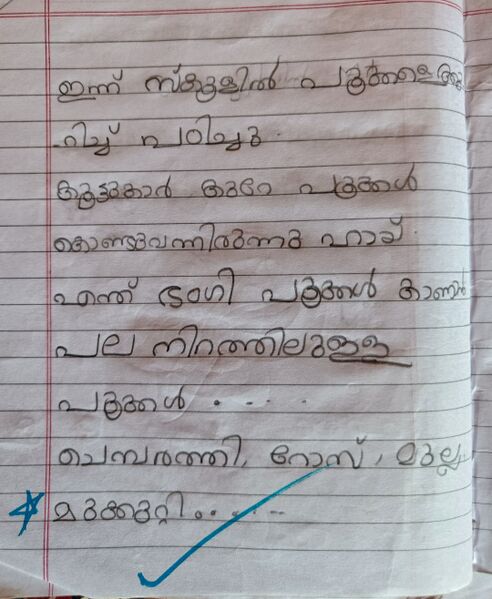 ഇന്ന് സ്കൂളിൽ പൂക്കളെക്കു
-റിച്ച് പഠിച്ചു.
കൂട്ടുകാർ കുറേ പൂക്കൾ
കൊണ്ടുവന്നിരുന്നു ഹായ്
എന്ത് ഭംഗി പൂക്കൾ കാണാൻ
പല നിറത്തിലുള്ള
പൂക്കൾ . . . .
ചെമ്പരത്തി, റോസ്, മുല്ല
മുക്കുറ്റി......